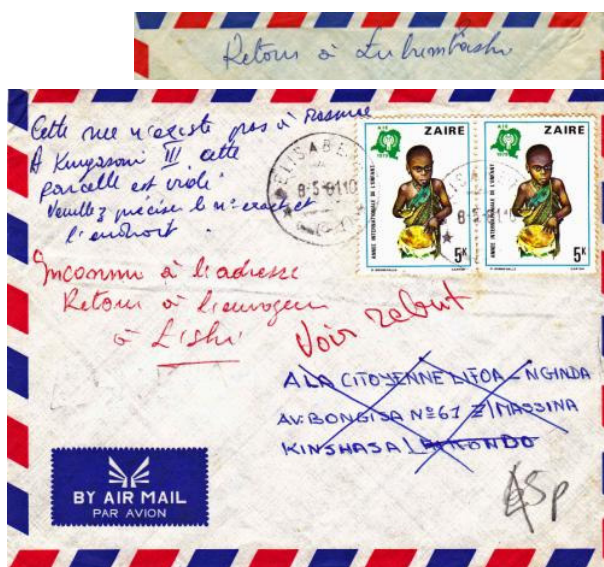 Retour à Lubumbashi
Cette rue n'existe pas à Massina
A Kingasani III cette
parcelle est vide
Veuillez préciser le n° exact et
l'endroit
ELISABE
8-5-8110
AIE
1979
ZAIRE
ANNEE INTERNATIONALE DE L'ENFANT
5K
AIE
1979
ZAIRE
ANNEE INTERNATIONALE DE L'ENFANT
5K
Inconnu à l'adresse
Retour à l'envoyeur
à L'shi
Voir rebut
A LA CITOYENNE NGINDA
AV: BONGISA Nº 61 Z/MASSINA
KINSHASA
BY AIR MAIL
PAR AVION